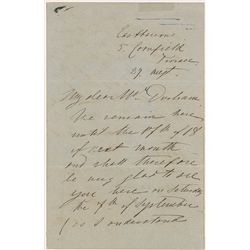 Eastbourne
5 Cornfield
Terrace
27 Augst.
My dear Mr Durham
We remain here
until the 17th or 18
of next month
and shall therefore
be very glad to see
you here on Saturday
the 7th of September
(as I understand